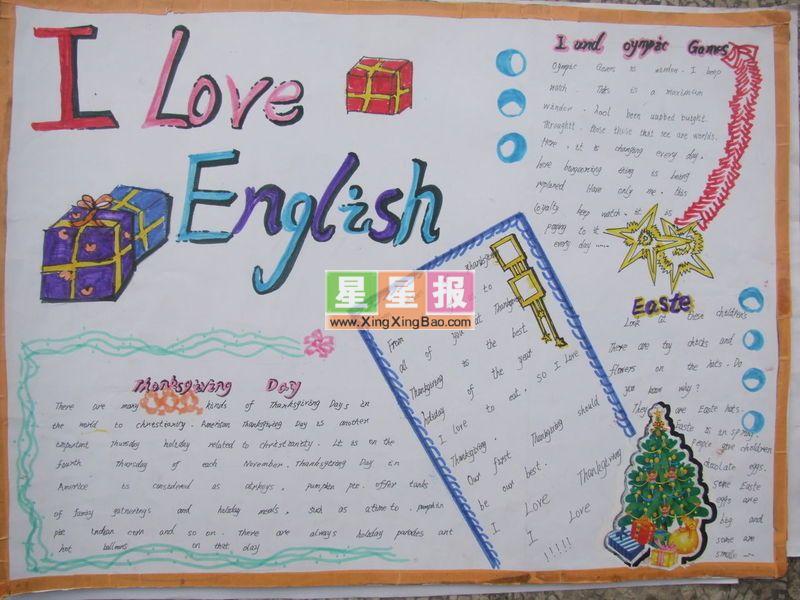 I Love
English
I and oympic Games
Olympic Games is warden. I keep
watch. This is a maximum
window. had been wabbed bught.
Throught. those that see are worlds.
Here, it is changing every day,
here thing is being
replaned Have only me. this
loyalty keep watch. it is
paying to it
every day
星星报
www.XingXingBao.com
Thanksgiving
From to
all of you at Thanksgiving
Thanksgiving is the best
holiday of the year
I love to eat. SO I Love
Thanksgiving.
Our first Thanksgiving should
be our best.
I Love Thanksgiving
I Love
!!!!!
Easte
Look at these children's
There are toy chicks and
flowers on the hats. Do
you know why?
They are Easte hats.
Easte is in spring.
People give children
chocolate eggs.
some Easte
eggs are
big and
some are
small
Thanksgiving Day
There are many kinds of Thanksgiving Days in
the world to christianity. American Thanksgiving Day is another
important Thursday holiday related to christianity. It is on the
fourth Thursday of each November. Thanksgiving Day in
America is considered as pumpkin pie. offer tanks
of family gatherings and holiday meals, such as a time to. pumpkin
pie indian corn and so on. There are always holiday parades ant
hot balloons on that day